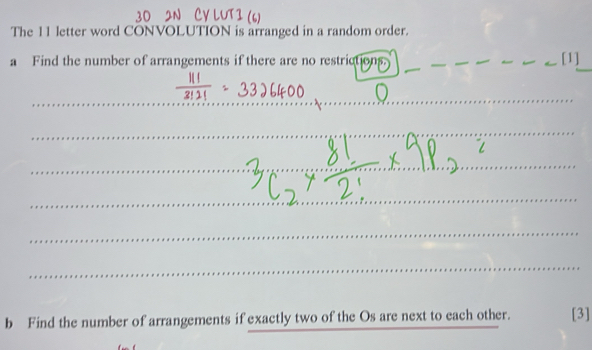 3O 2N CVLUTI (6)
The 11 letter word CONVOLUTION is arranged in a random order.
a Find the number of arrangements if there are no restrictions. [1]
OO _ _ _ _ _ _ _ _
11! / 3!2! = 3326400
O
3C2 × 8!/2! × 9P2
b Find the number of arrangements if exactly two of the Os are next to each other. [3]